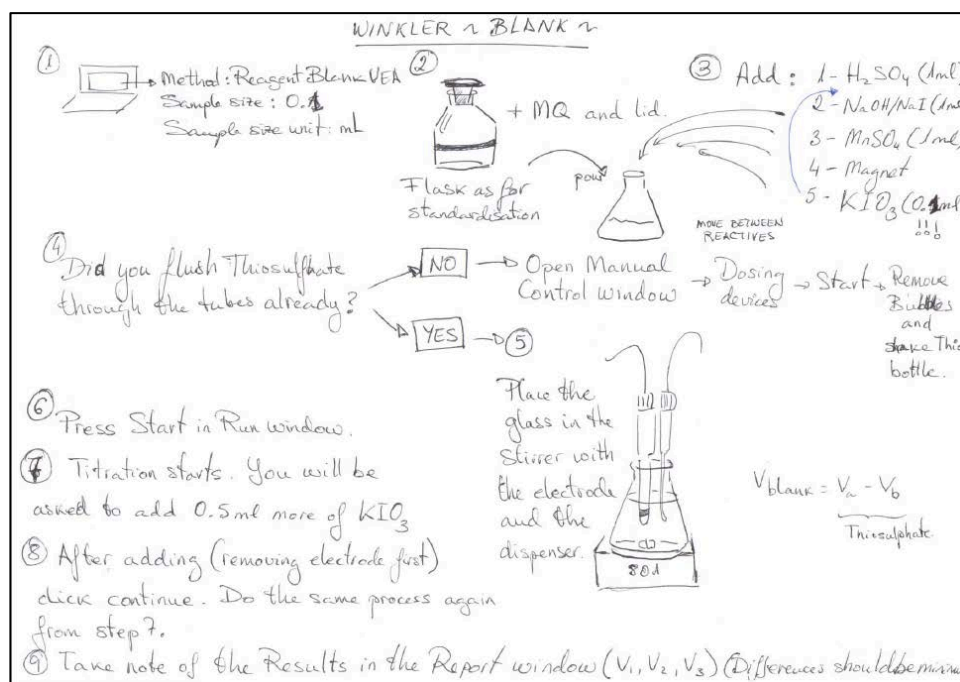 WINKLER ~ BLANK ~
① Method: Reagent Blank VEA
Sample size: 0.1
Sample size unit: mL
②
+ MQ and lid.
Flask as for
standardisation
pour
③ Add: 1- H₂SO₄ (1ml)
2- NaOH/NaI (1ml
3- MnSO₄ (1ml)
4- Magnet
5- KIO₃ (0.1ml
!!!
MOVE BETWEEN
REACTIVES
④ Did you flush Thiosulphate
through the tubes already?
NO
Open Manual
Control window
Dosing
devices
Start
Remove
Bubbles
and
shake Thio
bottle.
YES
⑤
Place the
glass in the
stirrer with
the electrode
and the
dispenser.
801
⑥ Press Start in Run window.
⑦ Titration starts. You will be
asked to add 0.5ml more of KIO₃
⑧ After adding (removing electrode first)
click continue. Do the same process again
from step 7.
V blank = Va - Vb
Thiosulphate
⑨ Take note of the Results in the Report window (V₁, V₂, V₃) (Differences should be